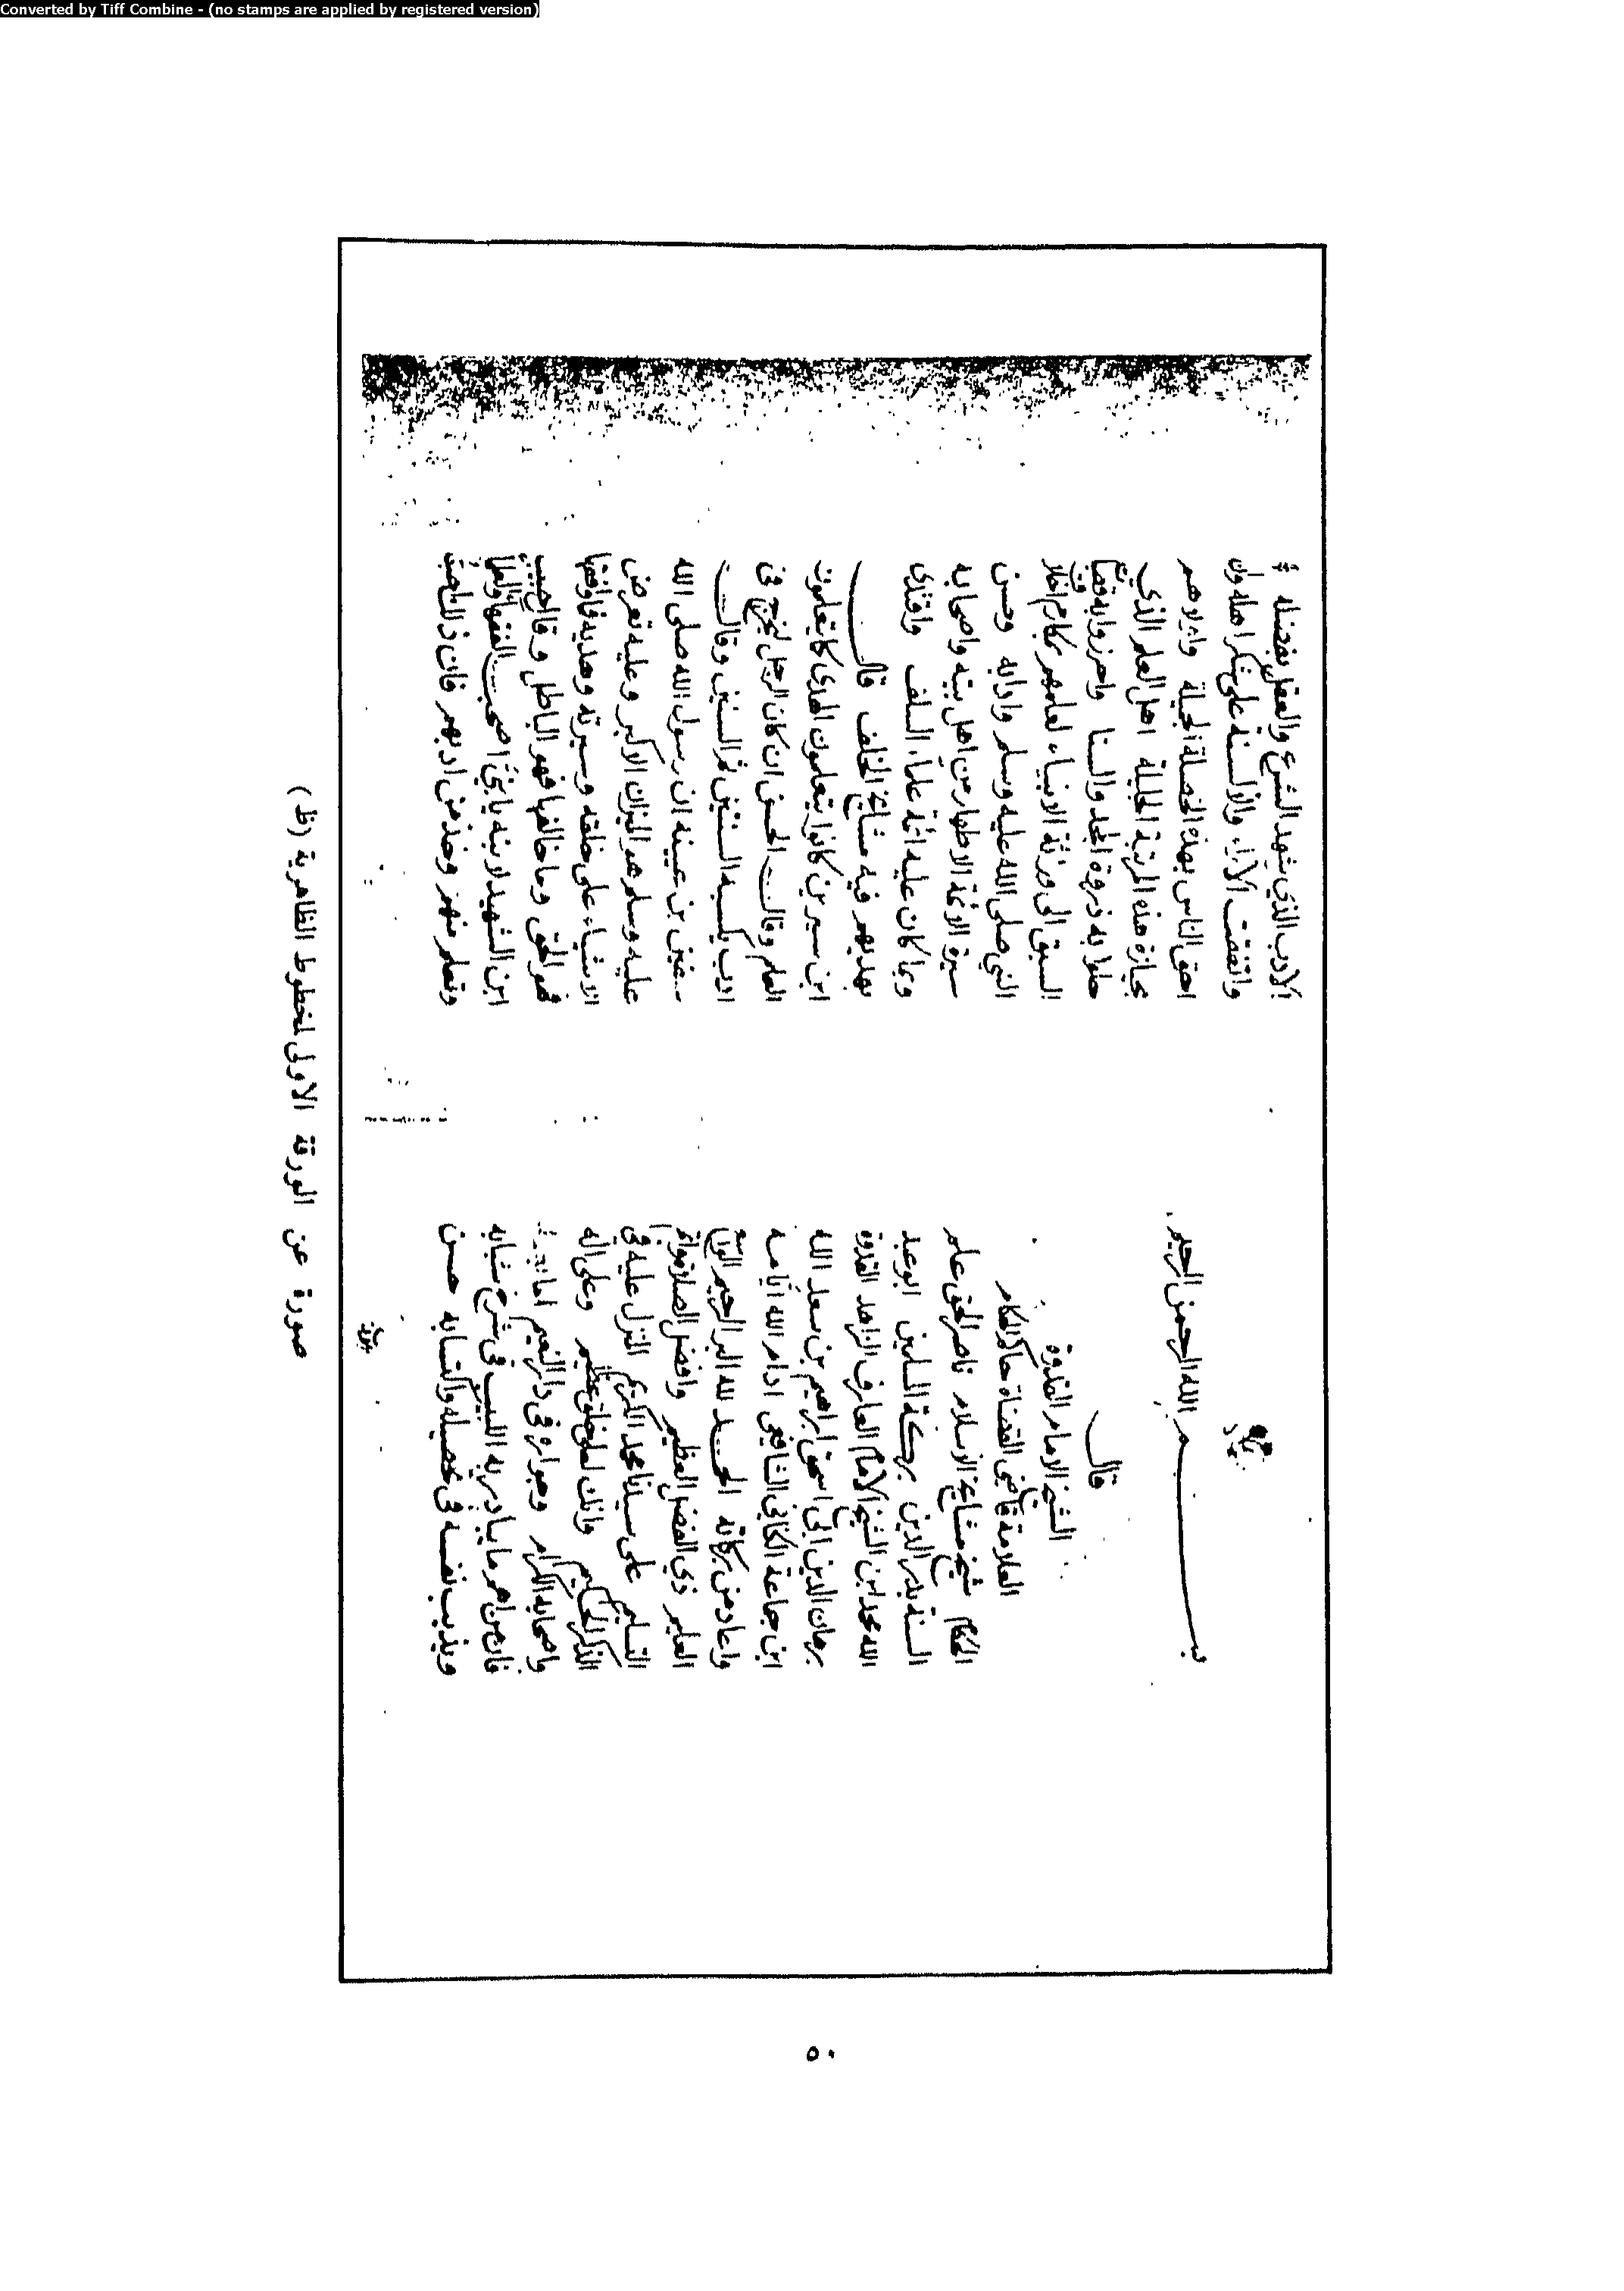 Converted by Tiff Combine - (no stamps are applied by registered version)
بسم الله الرحمن الرحيم
قال
الشيخ الامام القدوة
العلامة قاضي القضاة حاكم الحكام
الحكام شيخ مشايخ الاسلام ناصر الحق علم
السنة بدر الدين بركة المسلمين ابو عبد
الله محمد ابن الشيخ الامام العارف الزاهد القدوة
برهان الدين ابى اسحق ابراهيم بن سعد الله
ابن جماعة الكناني الشافعي ادام الله أيامه
واعاد من بركاته الحمد لله البر الرحيم الواسع
العليم ذي الفضل العظيم وافضل الصلاة واتم
التسليم على سيدنا محمد الكريم المنزل عليه في
الذكر الحكيم وانك لعلى خلق عظيم وعلى اله
واصحابه الكرام وجواره في دار النعيم اما بعد
فان من اهم ما يبادر به اللبيب في شرخ شبابه
ويذيب نفسه في تحصيله واكتسابه حسن
الادب الذي شهد الشرع والعقل بفضله
واتفقت الآراء والألسنة على شكر اهله وان
احق الناس بهذه الخصلة الجميلة واولاهم
بحيازة هذه المرتبة الجليلة اهل العلم الذي
حلوا به ذروة المجد والسنا واحرزوا به قصبات
السبق الى وراثة الانبياء لعلمهم بمكارم اخلاق
النبي صلى الله عليه وسلم وادابه وحسن
سيرة الائمة الاطهار من اهل بيته واصحابه
وبما كان عليه ائمة علماء السلف واقتدى
بهديهم فيه مشايخ الخلف قال
ابن سيرين كانوا يتعلمون الهدى كما يتعلمون
العلم وقال الحسن ان كان الرجل ليخرج في
ادب يكسبه السنتين ثم السنتين وقال
سفين بن عيينه ان رسول الله صلى الله
عليه وسلم هو الميزان الاكبر وعليه تعرض
الاشياء على خلقه وسيرته وهديه فما وافقها
فهو الحق وما خالفها فهو الباطل وقال حبيب
ابن الشهيد لابنه يا بنيّ اصحب الفقهاء والعلماء
وتعلم منهم وخذ من ادبهم فان ذلك احب
صورة عن الورقة الاولى لمخطوط الظاهرية (ظ)
٥٠